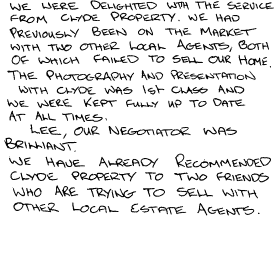 WE WERE DELIGHTED WITH THE SERVICE
FROM CLYDE PROPERTY. WE HAD
PREVIOUSLY BEEN ON THE MARKET
WITH TWO OTHER LOCAL AGENTS, BOTH
OF WHICH FAILED TO SELL OUR HOME.
THE PHOTOGRAPHY AND PRESENTATION
WITH CLYDE WAS 1st CLASS AND
WE WERE KEPT FULLY UP TO DATE
AT ALL TIMES.
LEE, OUR NEGOTIATOR WAS
BRILLIANT.
WE HAVE ALREADY RECOMMENDED
CLYDE PROPERTY TO TWO FRIENDS
WHO ARE TRYING TO SELL WITH
OTHER LOCAL ESTATE AGENTS.